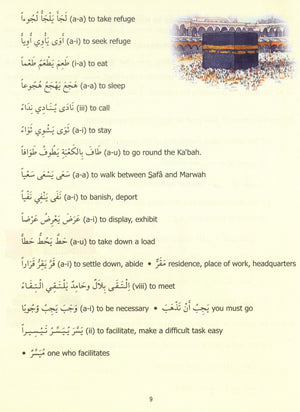 لَجَأَ يَلْجَأُ لُجُوءاً (a-a) to take refuge
أَوَى يَأْوِي أُوِيّاً (a-i) to seek refuge
طَعِمَ يَطْعَمُ طَعْماً (i-a) to eat
هَجَعَ يَهْجَعُ هُجُوعاً (a-a) to sleep
نَادَى يُنَادِي نِدَاءً (iii) to call
ثَوَى يَثْوِي ثَوَاءً (a-i) to stay
طَافَ بِالْكَعْبَةِ يَطُوفُ طَوَافاً (a-u) to go round the Ka'bah.
سَعَى يَسْعَى سَعْياً (a-a) to walk between Ṣafâ and Marwah
نَفَى يَنْفِي نَفْياً (a-i) to banish, deport
عَرَضَ يَعْرِضُ عَرْضاً (a-i) to display, exhibit
حَطَّ يَحُطُّ حَطّاً (a-u) to take down a load
قَرَّ يَقِرُّ قَرَاراً (a-i) to settle down, abide • مَقَرٌّ residence, place of work, headquarters
اِلْتَقَى بِلَالٌ وحَامِدٌ يَلْتَقِي اِلْتِقَاءً (viii) to meet
وَجَبَ يَجِبُ وُجُوباً (a-i) to be necessary • يَجِبُ أَنْ تَذْهَبَ you must go
يَسَّرَ يُيَسِّرُ تَيْسِيراً (ii) to facilitate, make a difficult task easy
• مُيَسِّرٌ one who facilitates
9